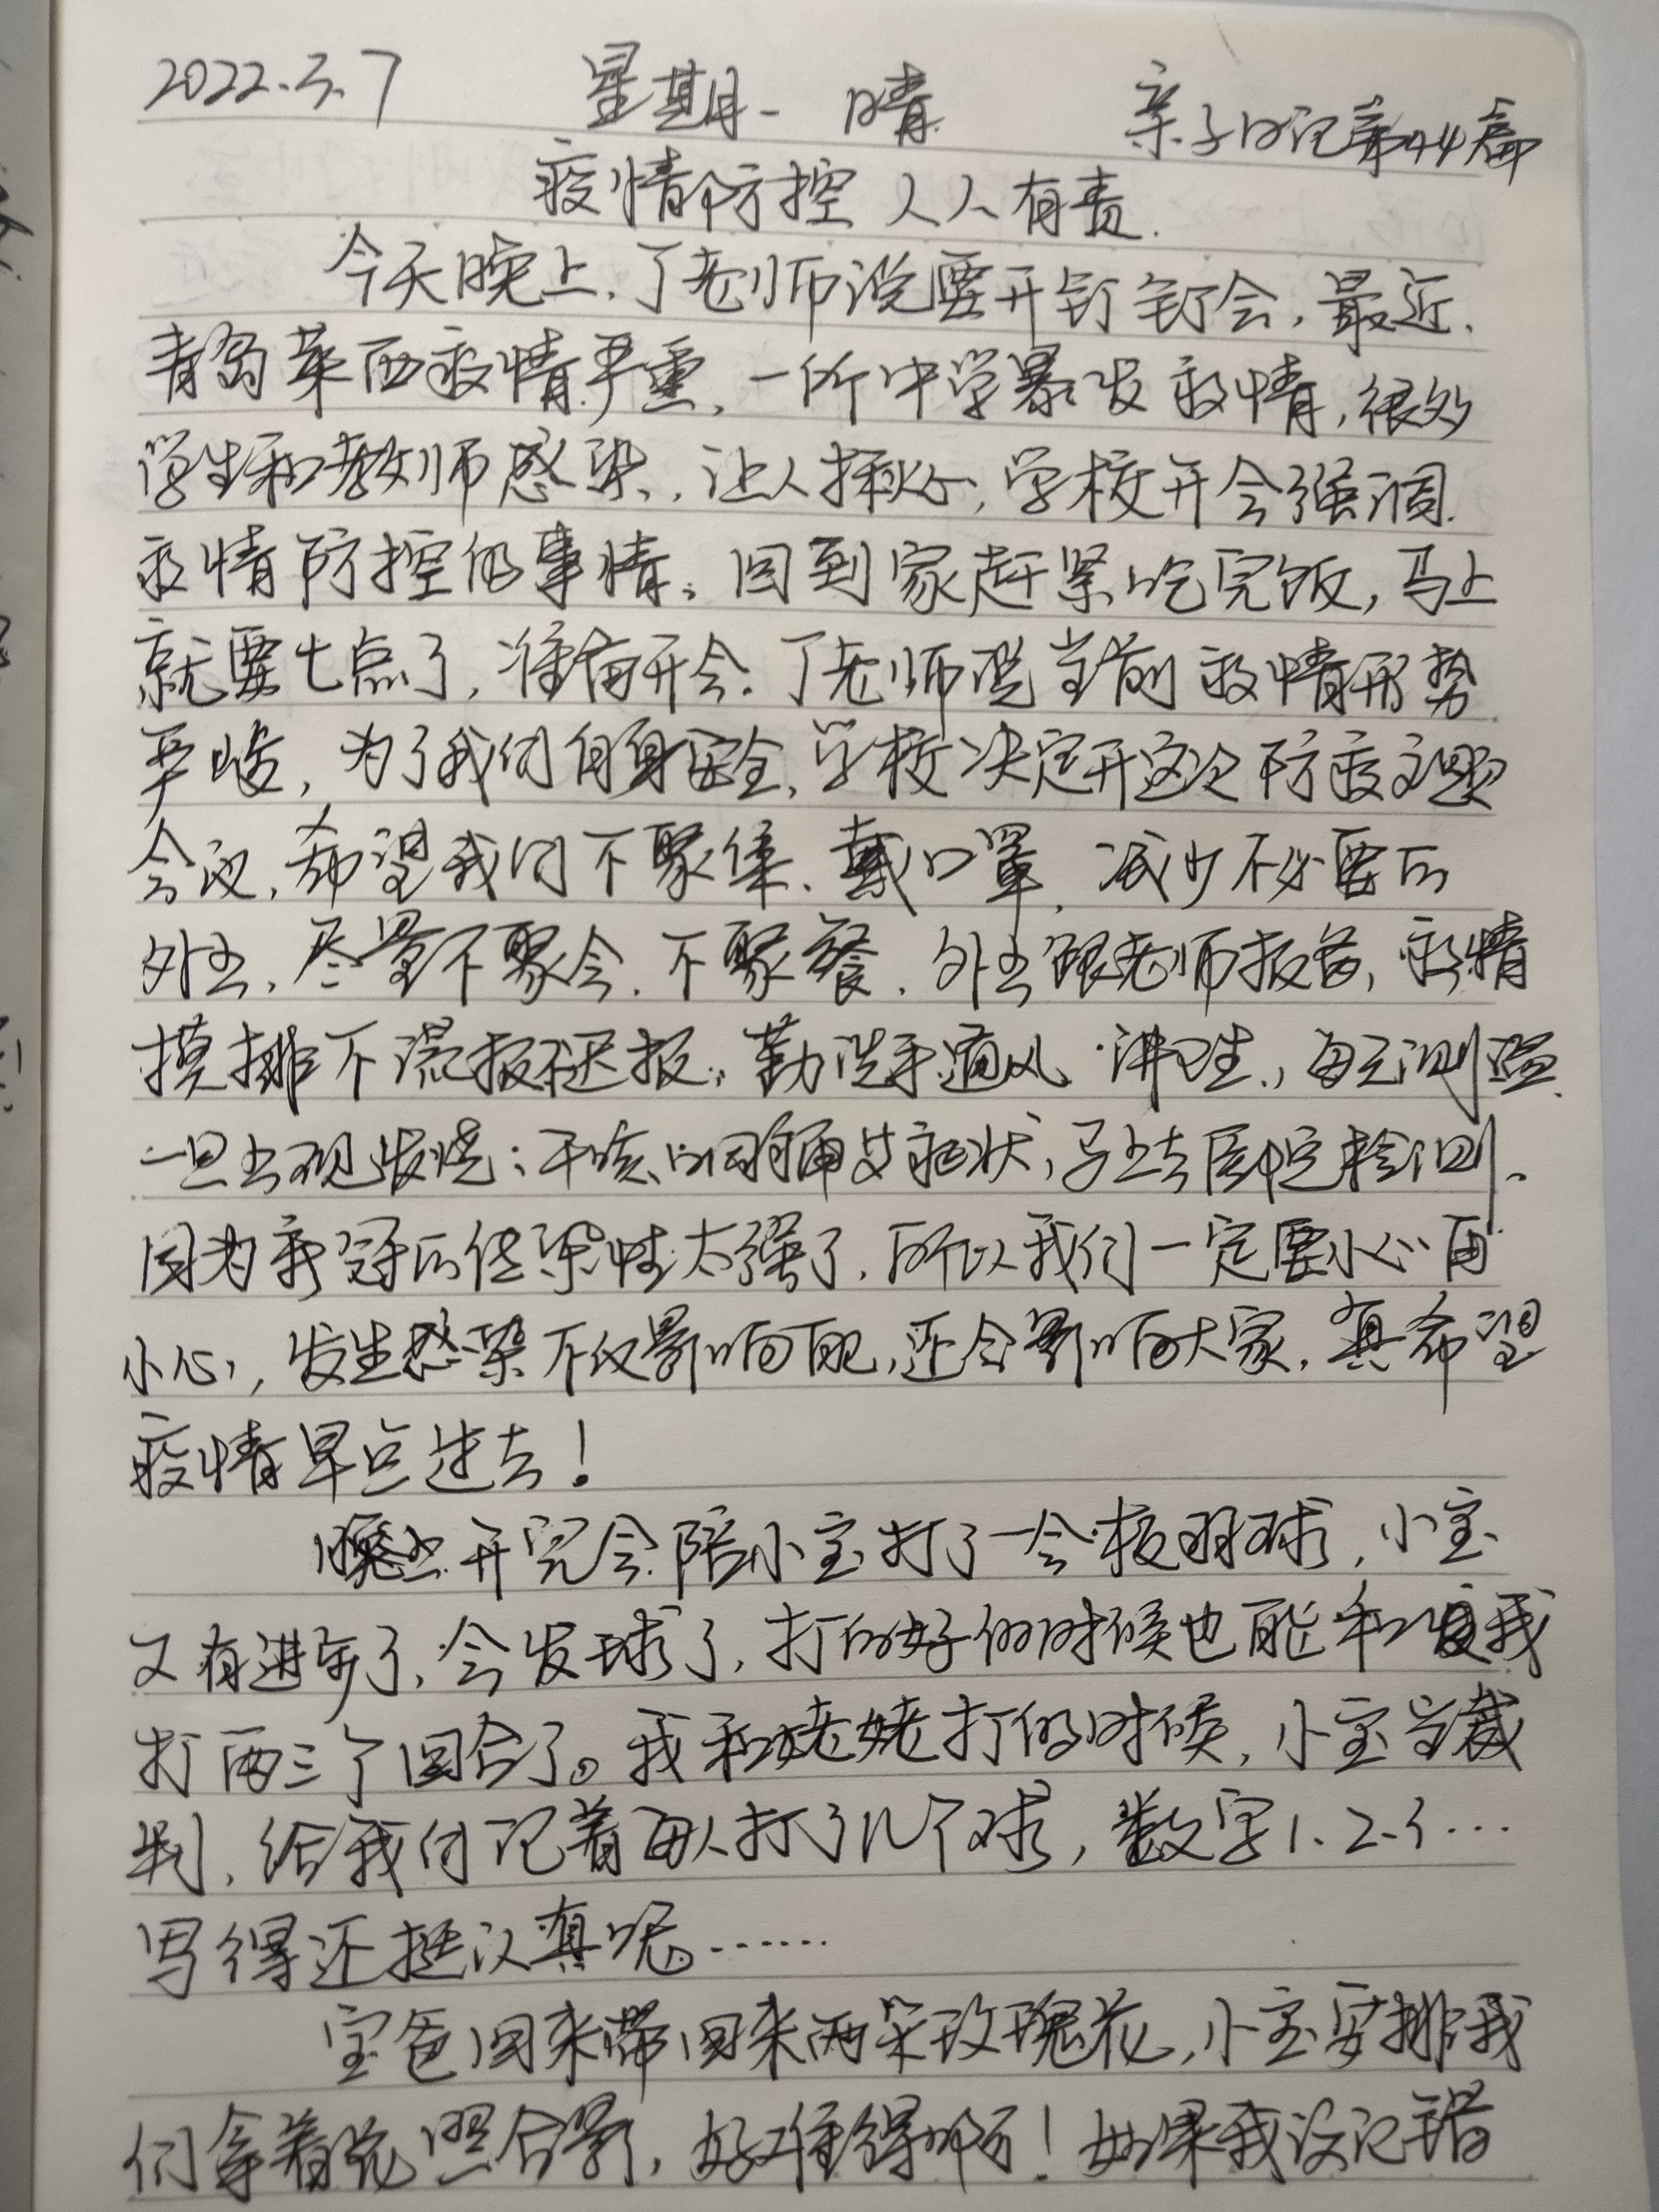 2022.3.7 星期一 晴 亲子日记第44篇
疫情防控 人人有责.
今天晚上,丁老师说要开钉钉会,最近,
青岛莱西疫情严重,一所中学暴发疫情,很多
学生和教师感染,让人揪心,学校开会强调
疫情防控的事情。回到家赶紧吃完饭,马上
就要七点了,准备开会.丁老师说当前疫情形势
严峻,为了我们自身安全,学校决定开这次防疫主题
会议,希望我们不聚集、戴口罩,减少不必要的
外出,尽量不聚会、不聚餐.外出跟老师报备,疫情
摸排不谎报迟报,勤洗手通风 讲卫生,每天测温
一旦出现发烧;干咳、咽痛等症状,马上去医院检测.
因为新冠的传染性太强了,所以我们一定要小心再
小心,发生感染不仅影响自己,还会影响大家,真希望
疫情早点过去!
晚上开完会陪小宝打了一会板羽球,小宝
又有进步了,会发球了,打的好的时候也能和我
打两三个回合了。我和姥姥打的时候,小宝当裁
判,给我们记着每人打了几个球,数字1.2.3...
写得还挺认真呢。......
宝爸回来带回来两朵玫瑰花,小宝安排我
们拿着花照合影,好难得啊!如果我没记错